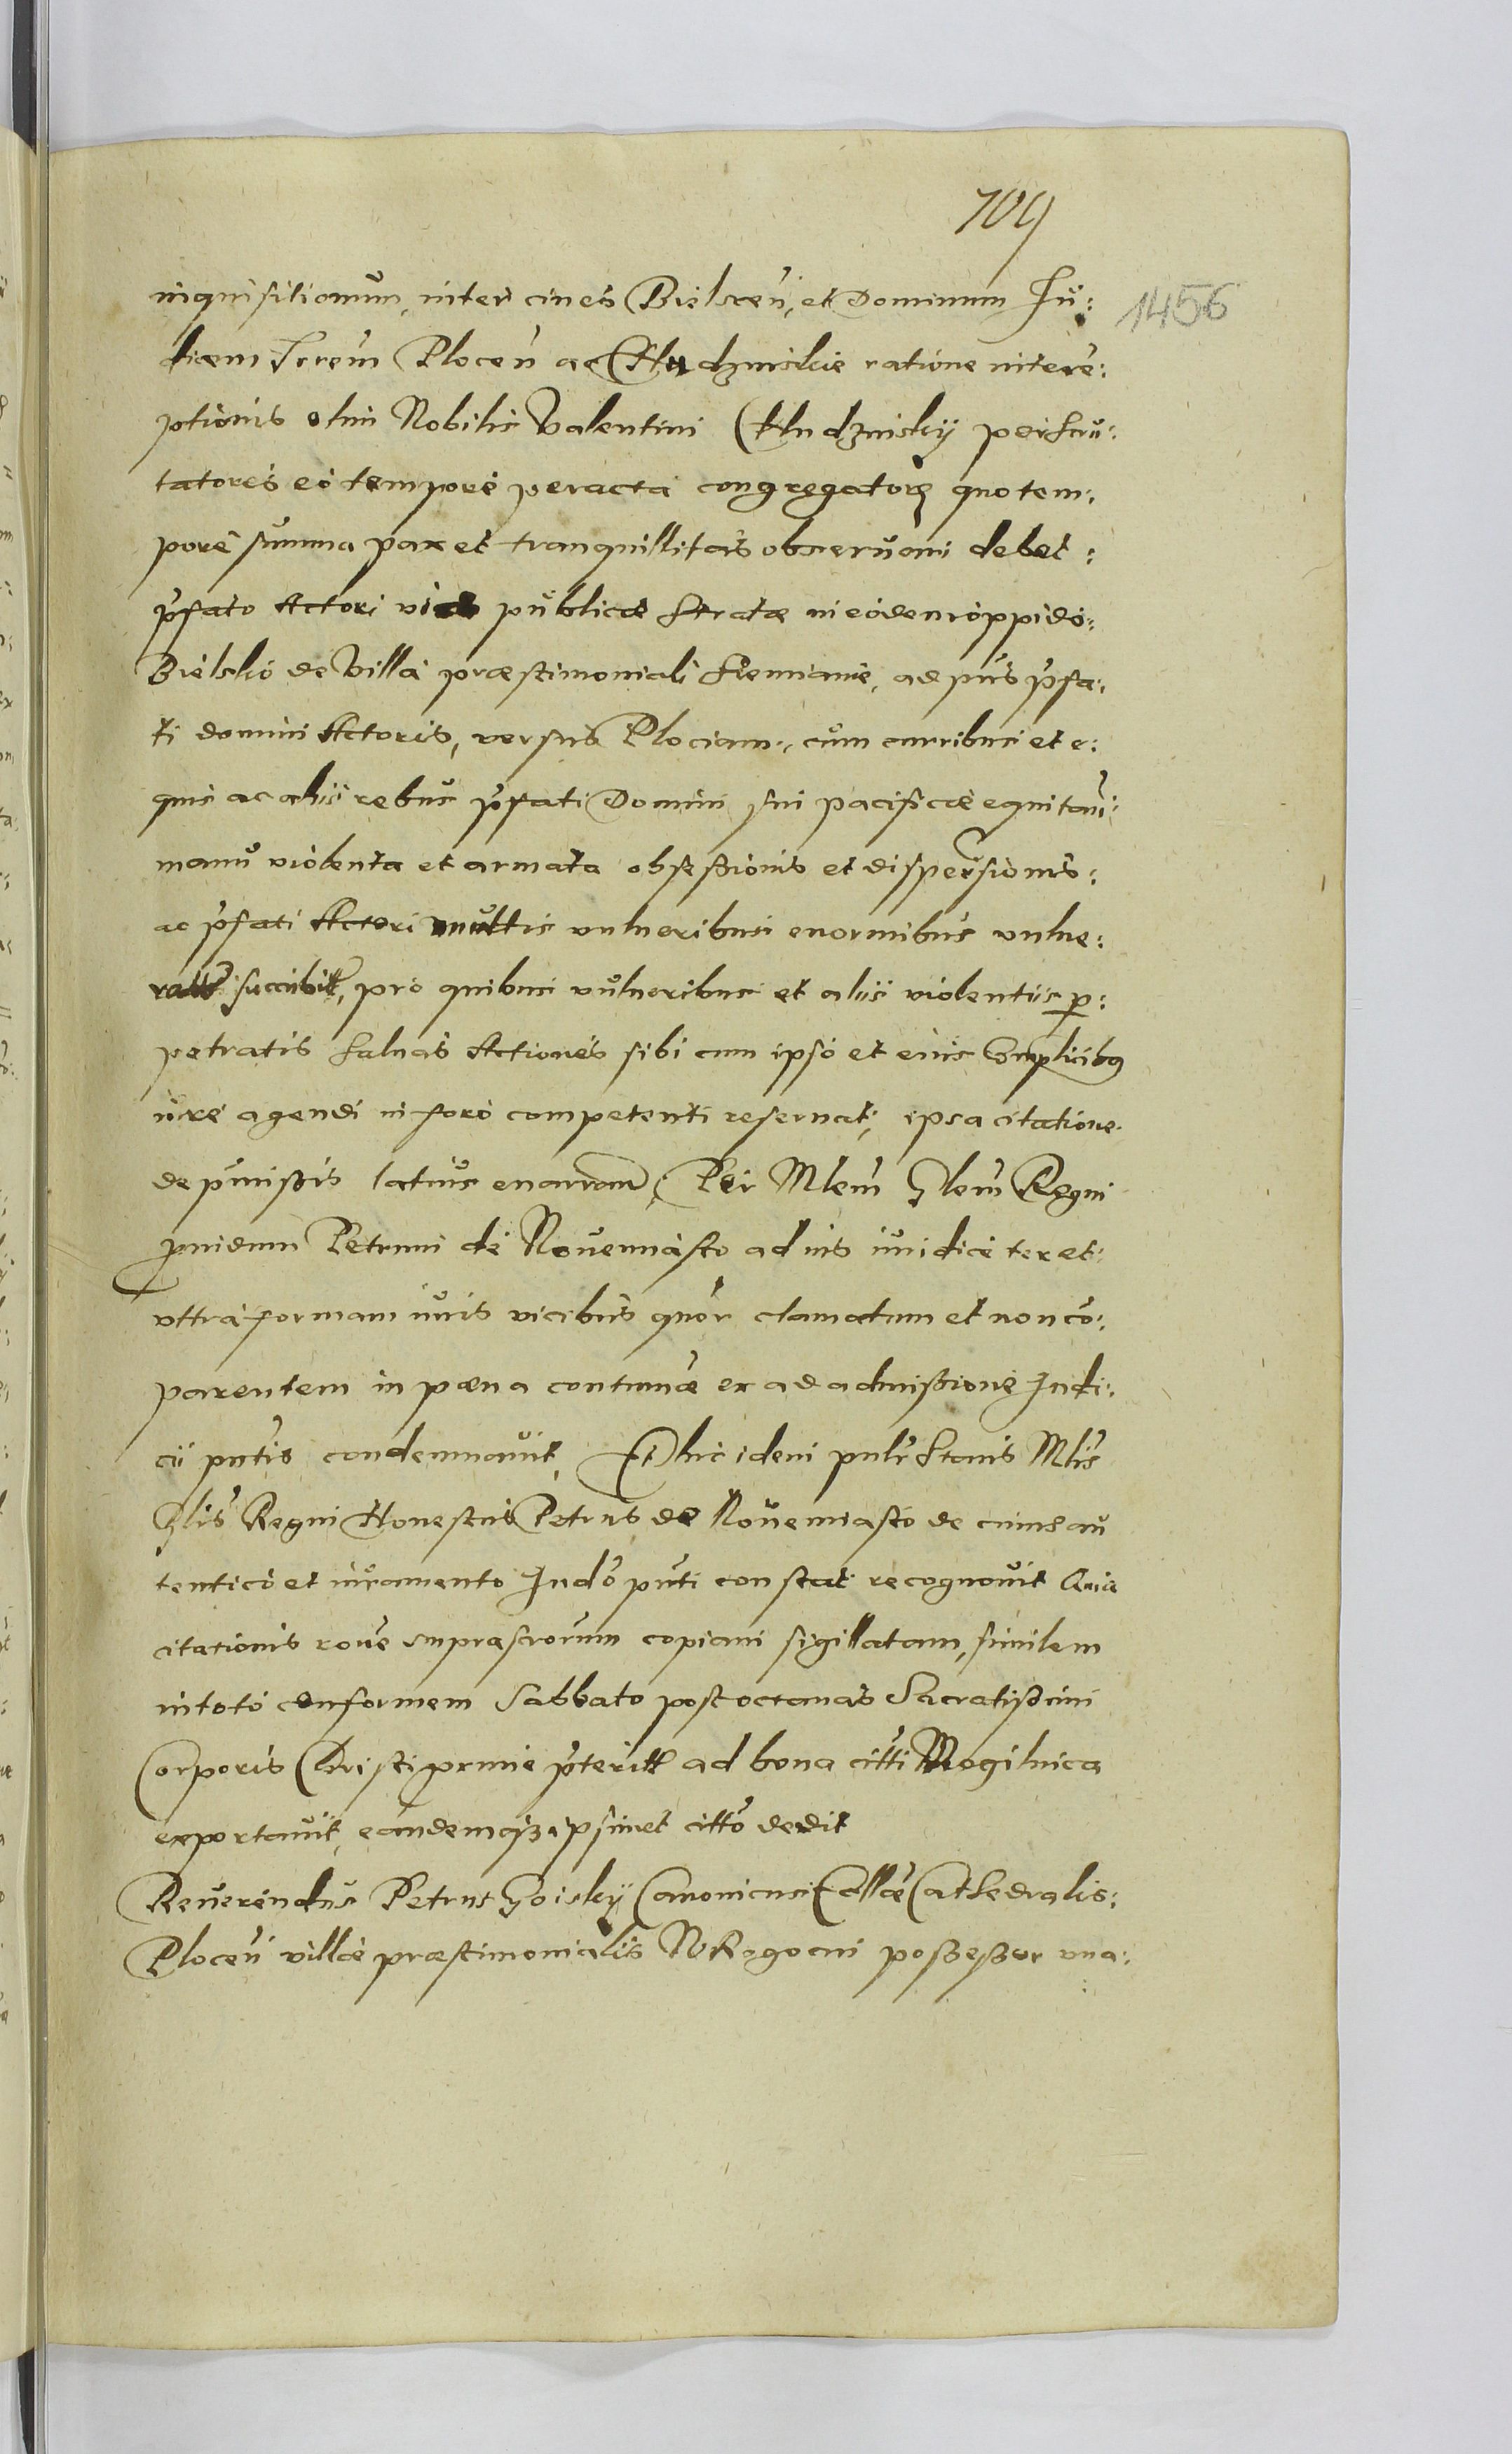 709
1456
inquisitionum, inter cives Bielscen, et Dominum Ju:
dicem Trrem Plocen ac Chudzinskie ratione intere:
ptionis olim Nobilis Valentini Chudzinskij per scru:
tatores eo tempore peracta congregator quo tem:
pore summa pax et tranquillitas observari debet:
pfato Actori publicae stratae in eodem oppido:
Bielsko de Villa praestimoniali ad pns pfa:
ti domini Actoris, versus Plociam, cum curribus et e:
quis ac aliis rebus pfati Domini sui pacifice equitan:
manu violenta et armata obsessionis et dispersionis:
ac pfati Actori multis vulneribus enormibus vulne:
ratr succubit, pro quibus vulneribus et aliis violentiis p:
petratis salvas Actiones sibi cum ipso et eius Complicibus
iure agendi in foro competenti reservat, ipsa citatione
de pmissis latius enarran, Per Mlem Glem Regni
pvidum Petrum de Novemiasto ad nrs iuridice ter et
ultra formam iuris vicibus quor clamatum et non co:
parentem in poena contumae ex ad admissione Judi:
cii pntis condemnavit, Et hic idem pnlr stans Mlis
Glis Regni Honestus Petrus de Novemiasto de cuius au
tentico et iuramento Judo pnti constat recognovit Quia
citationis rove suprascrorum copiam sigillatam, similem
in toto conformem Sabbato post octavas Sacratissimi
Corporis Christi pxme pterit ad bona citti Mogilnica
exportavit, eandemqz ipsimet citto dedit
Reverendus Petrus Goiskij Canonicus Ecclae Cathedralis:
Plocen villae praestimonialis Rogocin possessor una: